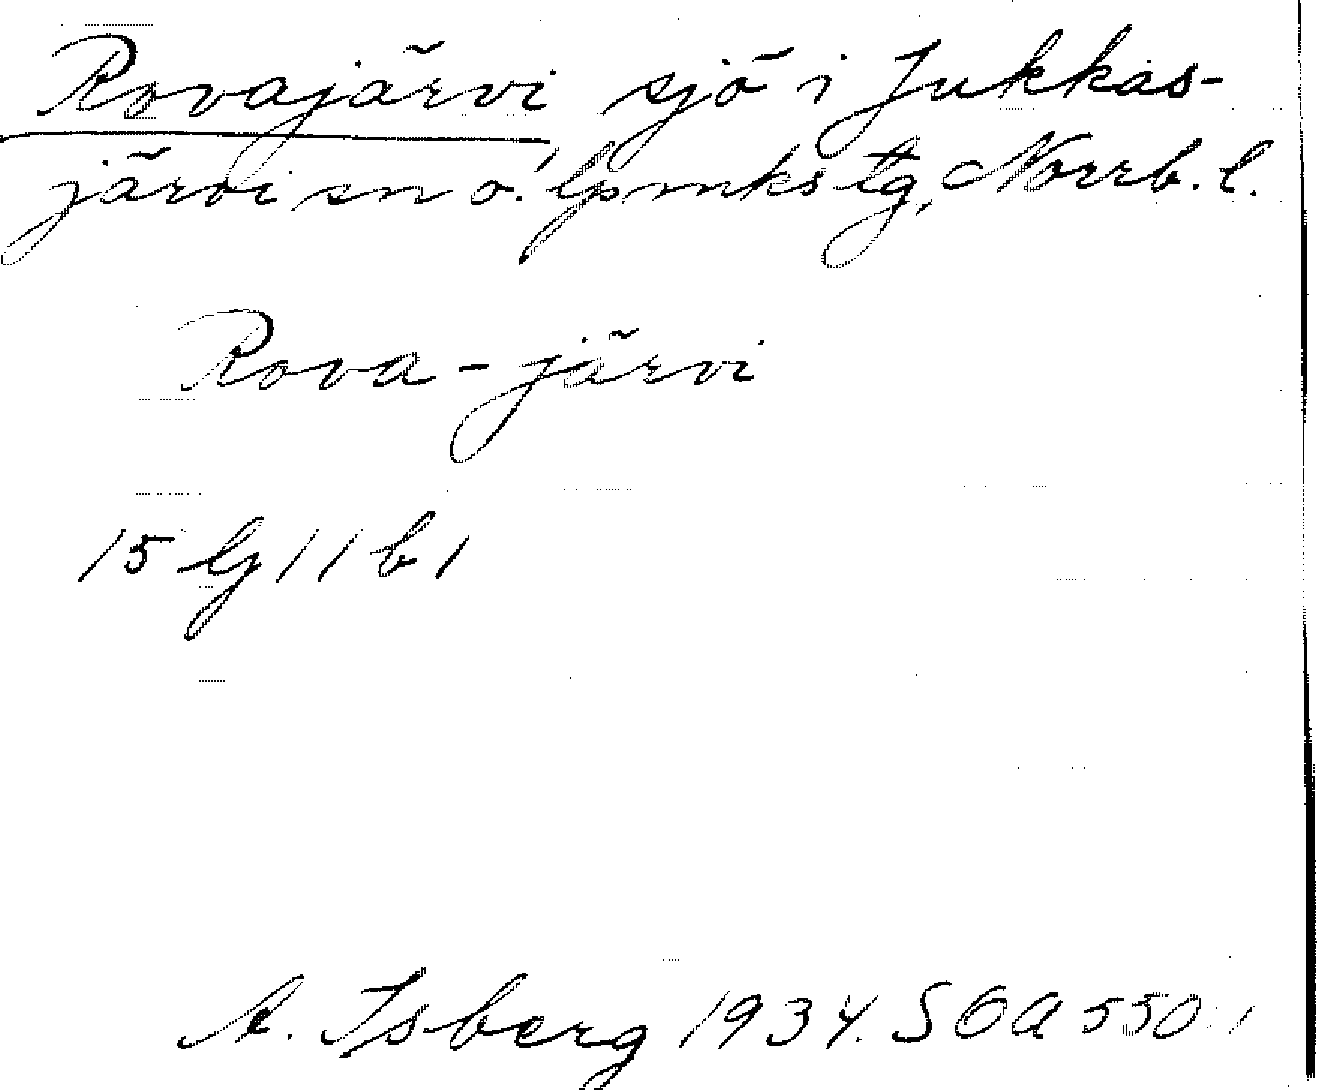 Rovajärvi sjö i Jukkas-
järvi sn o. lpmks tg, Norrb. l.
Rova-järvi
15 G 11 b 1
A. Isberg 1934. SOA 550:1